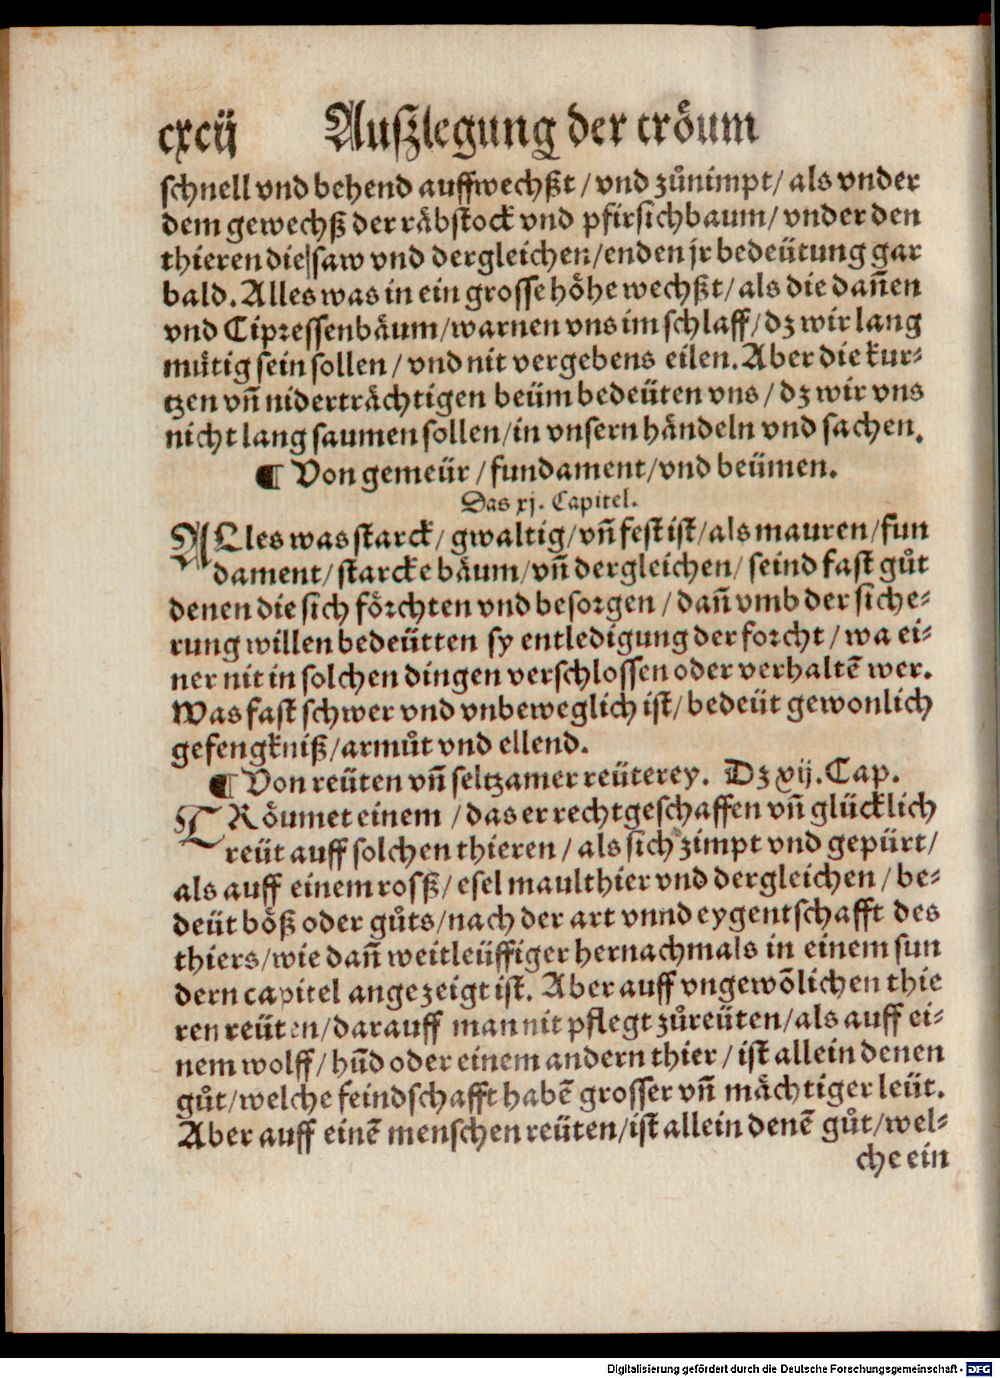 cxcij Auſzlegung der tröum
ſchnell vnd behend auffwechßt / vnd zůnimpt / als vnder
dem gewechß der räbſtock vnd pfirſichbaum / vnder den
thieren die ſaw vnd dergleichen / enden jr bedeütung gar
bald. Alles was in ein groſſe höhe wechßt / als die dañen
vnd Cipꝛeſſenbäum / warnen vns im ſchlaff / dz wir lang
mütig ſein ſollen / vnd nit vergebens eilen. Aber die kur⸗
tzen vñ niderträchtigen beüm bedeüten vns / dz wir vns
nicht lang ſaumen ſollen / in vnſern händeln vnd ſachen.
¶ Von gemeür / fundament / vnd beümen.
Das xj. Capitel.
ALles was ſtarck / gwaltig / vñ feſt iſt / als mauren / fun
dament / ſtarcke bäum / vñ dergleichen / ſeind faſt gůt
denen die ſich föꝛchten vnd beſoꝛgen / dañ vmb der ſiche⸗
rung willen bedeütten ſy entledigung der foꝛcht / wa ei⸗
ner nit in ſolchen dingen verſchloſſen oder verhaltẽ wer.
Was faſt ſchwer vnd vnbeweglich iſt / bedeüt gewonlich
gefengkniß / armůt vnd ellend.
¶ Von reüten vñ ſeltzamer reüterey. Dz xij. Cap.
TRöumet einem / das er rechtgeſchaffen vñ glücklich
reüt auff ſolchen thieren / als ſich zimpt vnd gepürt /
als auff einem roſß / eſel maulthier vnd dergleichen / be⸗
deüt böß oder gůts / nach der art vnnd eygentſchafft des
thiers / wie dañ weitleüffiger hernachmals in einem ſun
dern capitel angezeigt iſt. Aber auff vngewõlichen thie
ren reüten / darauff man nit pflegt zůreüten / als auff ei⸗
nem wolff / hũd oder einem andern thier / iſt allein denen
gůt / welche feindſchafft habẽ groſſer vñ mächtiger leüt.
Aber auff einẽ menſchen reüten / iſt allein denẽ gůt / wel⸗
che ein
Digitalisierung gefördert durch die Deutsche Forschungsgemeinschaft - DFG